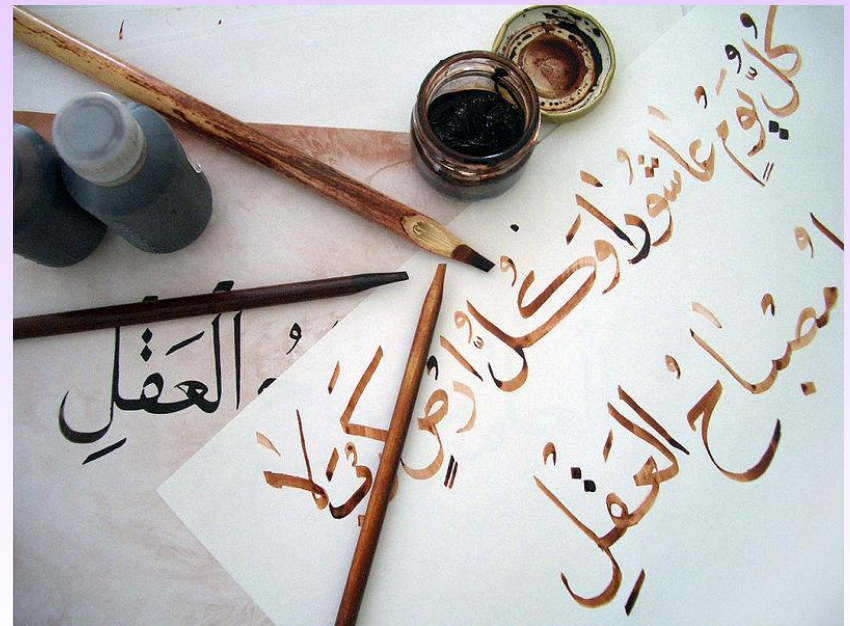 كُلُّ يَومٍ عَاشُورَا وَكُلُّ اَرضٍ كَربَلَا
مُصبَاحُ العَقلِ
العَقلِ